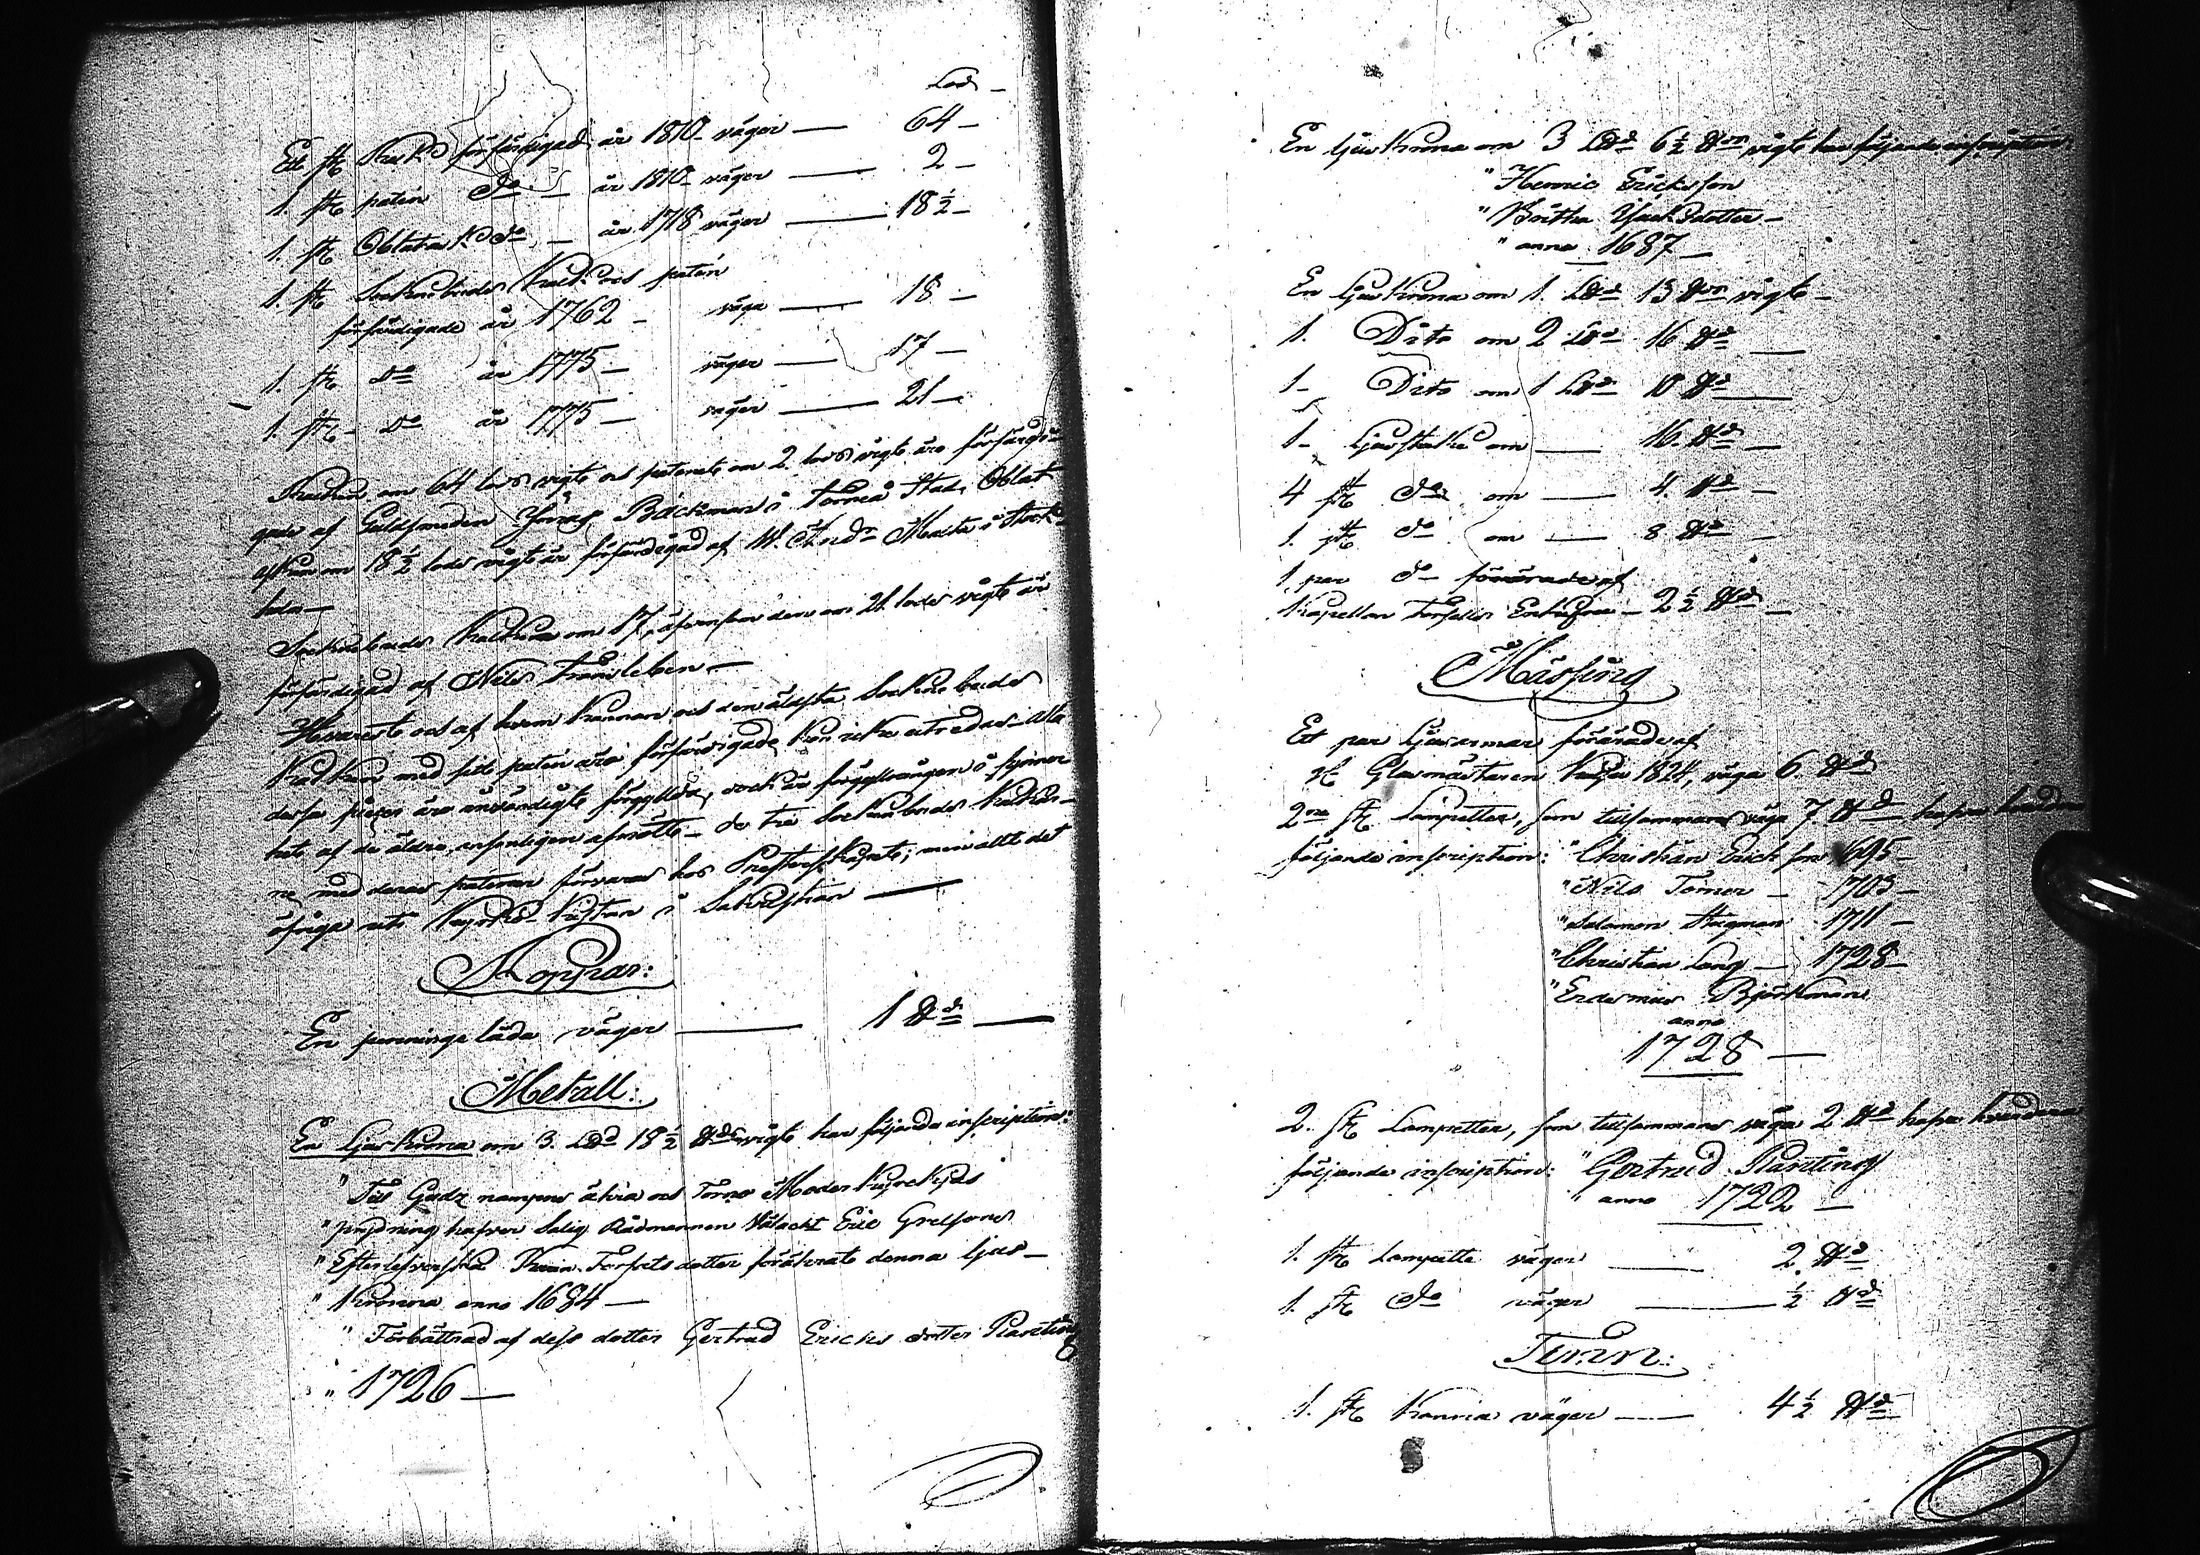 Lod
Ett st. Kalk förfärdigad år 1810 väger — 64 —
1. st. patén do — år 1810 väger — 2 —
1. st. Oblatask do — år 1718 väger — 18 ½ —
1. st. Sockenbuds Kalk och patén
förfärdigade år 1762 — väga — 18 —
1. st. do år 1775 — väger — 17 —
1. st. do år 1775 — väger — 21 —
Kalken om 64 lods vigt och patenete om 2. lods vigt äro förfärdi-
gade af Guldsmeden Bäckman i Torneå Stad, Oblat
asken om 18 ½ lods vigt är förfärdigad af i Stock-
holm —
Sockenbuds Kalkarne om 17, äfvensom den om 21 lods vigt är
förfärdigad af Nils —
Hvareste och af hvem Kannan och den äldsta Sockne buds
Kalken med sitt patén äro förfärdigade kan icke utredas. Alla
dessa piéçer äro invändigt förgyllda, och är förgyllningen i synner
het af de äldre, ansenligen afnött — De tre Sockenbuds Kalkar-
ne med deras patener förvaras hos Presterskapet; men allt det
öfriga uti Kyrko-Kistan i Sakristian —
Koppar:
En penninge låda väger — 1 ℔d —
Metall:
En Ljuskrona om 3. L℔d 18 ½ ℔ds vigt har följande inscription:
" Till Gudz nampns ähra och Torne Moderkyrckjas
" prydning hafver Salig Rådmannen Wälacht Eric Grelsons
" Efterlefverska Karin Torfets dotter förährat denna ljus —
" Krona anno 1684 —
" Förbättrad af dess dotter Gertrud Erichs dotter Planting
" 1726 —
En ljus Krona om 3 L℔d 6 ½ ℔ds vigt har följande inscription
" Henric Ericksson
" Britha dotter —
" anno 1687 —
En Ljus Krona om 1. L℔d 13 ℔ds vigt —
1. Dito om 2 L℔d 16 ℔d —
1 — Dito om 1 L℔d 10 ℔d —
1 — Ljusstake om — 16. ℔d —
4 st. do om — 4. ℔d —
1. st. do om — 8 ℔d —
1. par do förärade af
Kapellan — 2 ½ ℔d —
Mässing
Ett par Ljusarmar förärade af
Glasmästaren 1824, väga 6. ℔d
2ne st. Lampetter, som tillsammans väga 7. ℔d hafva hvardera
följande inscription: " Christian Erick son 1695 —
" Nils Torner — 1703 —
" Salomon Stegman 1711 —
" Christian Lang — 1728 —
" Björkman
anno
1728 —
2. st. Lampetter, som tillsammans väga 2 ℔d hafva hvardera
följande inscription: " Gertrud Planting
" anno 1722 —
1. st. Lampette väger — 2 ℔d
1. st. do väger — ½ ℔d
Tenn:
1. st. Kanna väger — 4 ½ ℔d